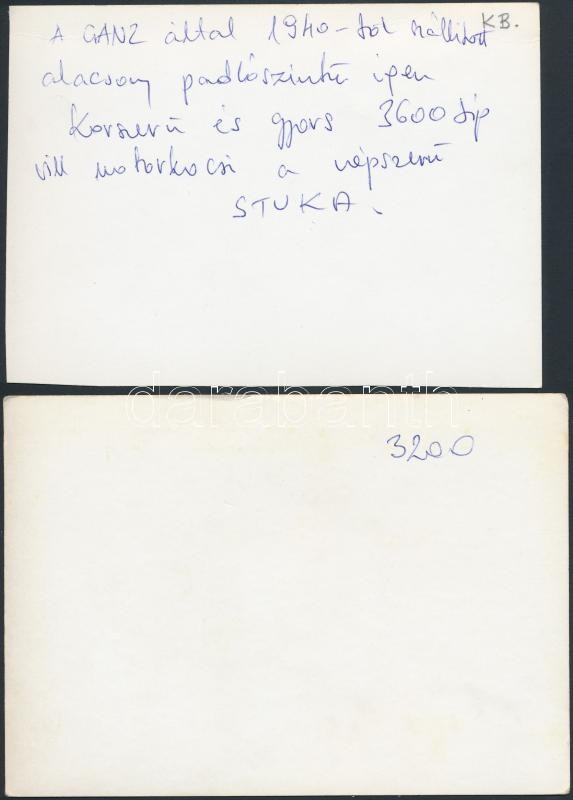 KB.
A GANZ által 1940-től szállított
alacsony padlószintű igen
Korszerű és gyors 3600 tip
vill motorkocsi a népszerű
STUKA.
darabanth
3200